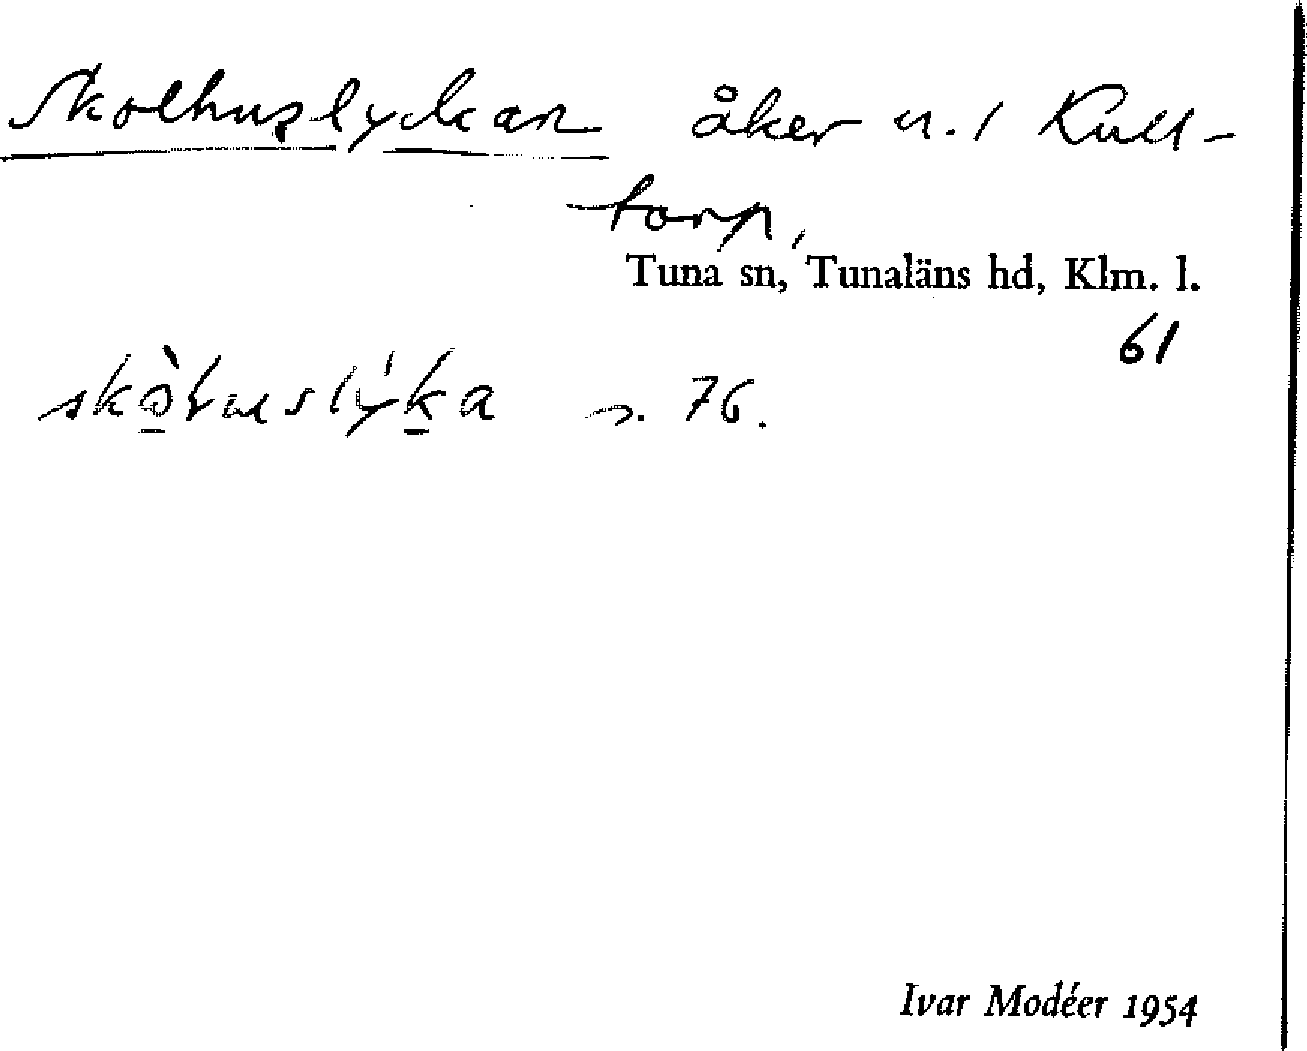 Skolhuslyckan åker n. 1 Kull-
torp,
Tuna sn, Tunaläns hd, Klm. l.
61
s. 76.
Ivar Modéer 1954